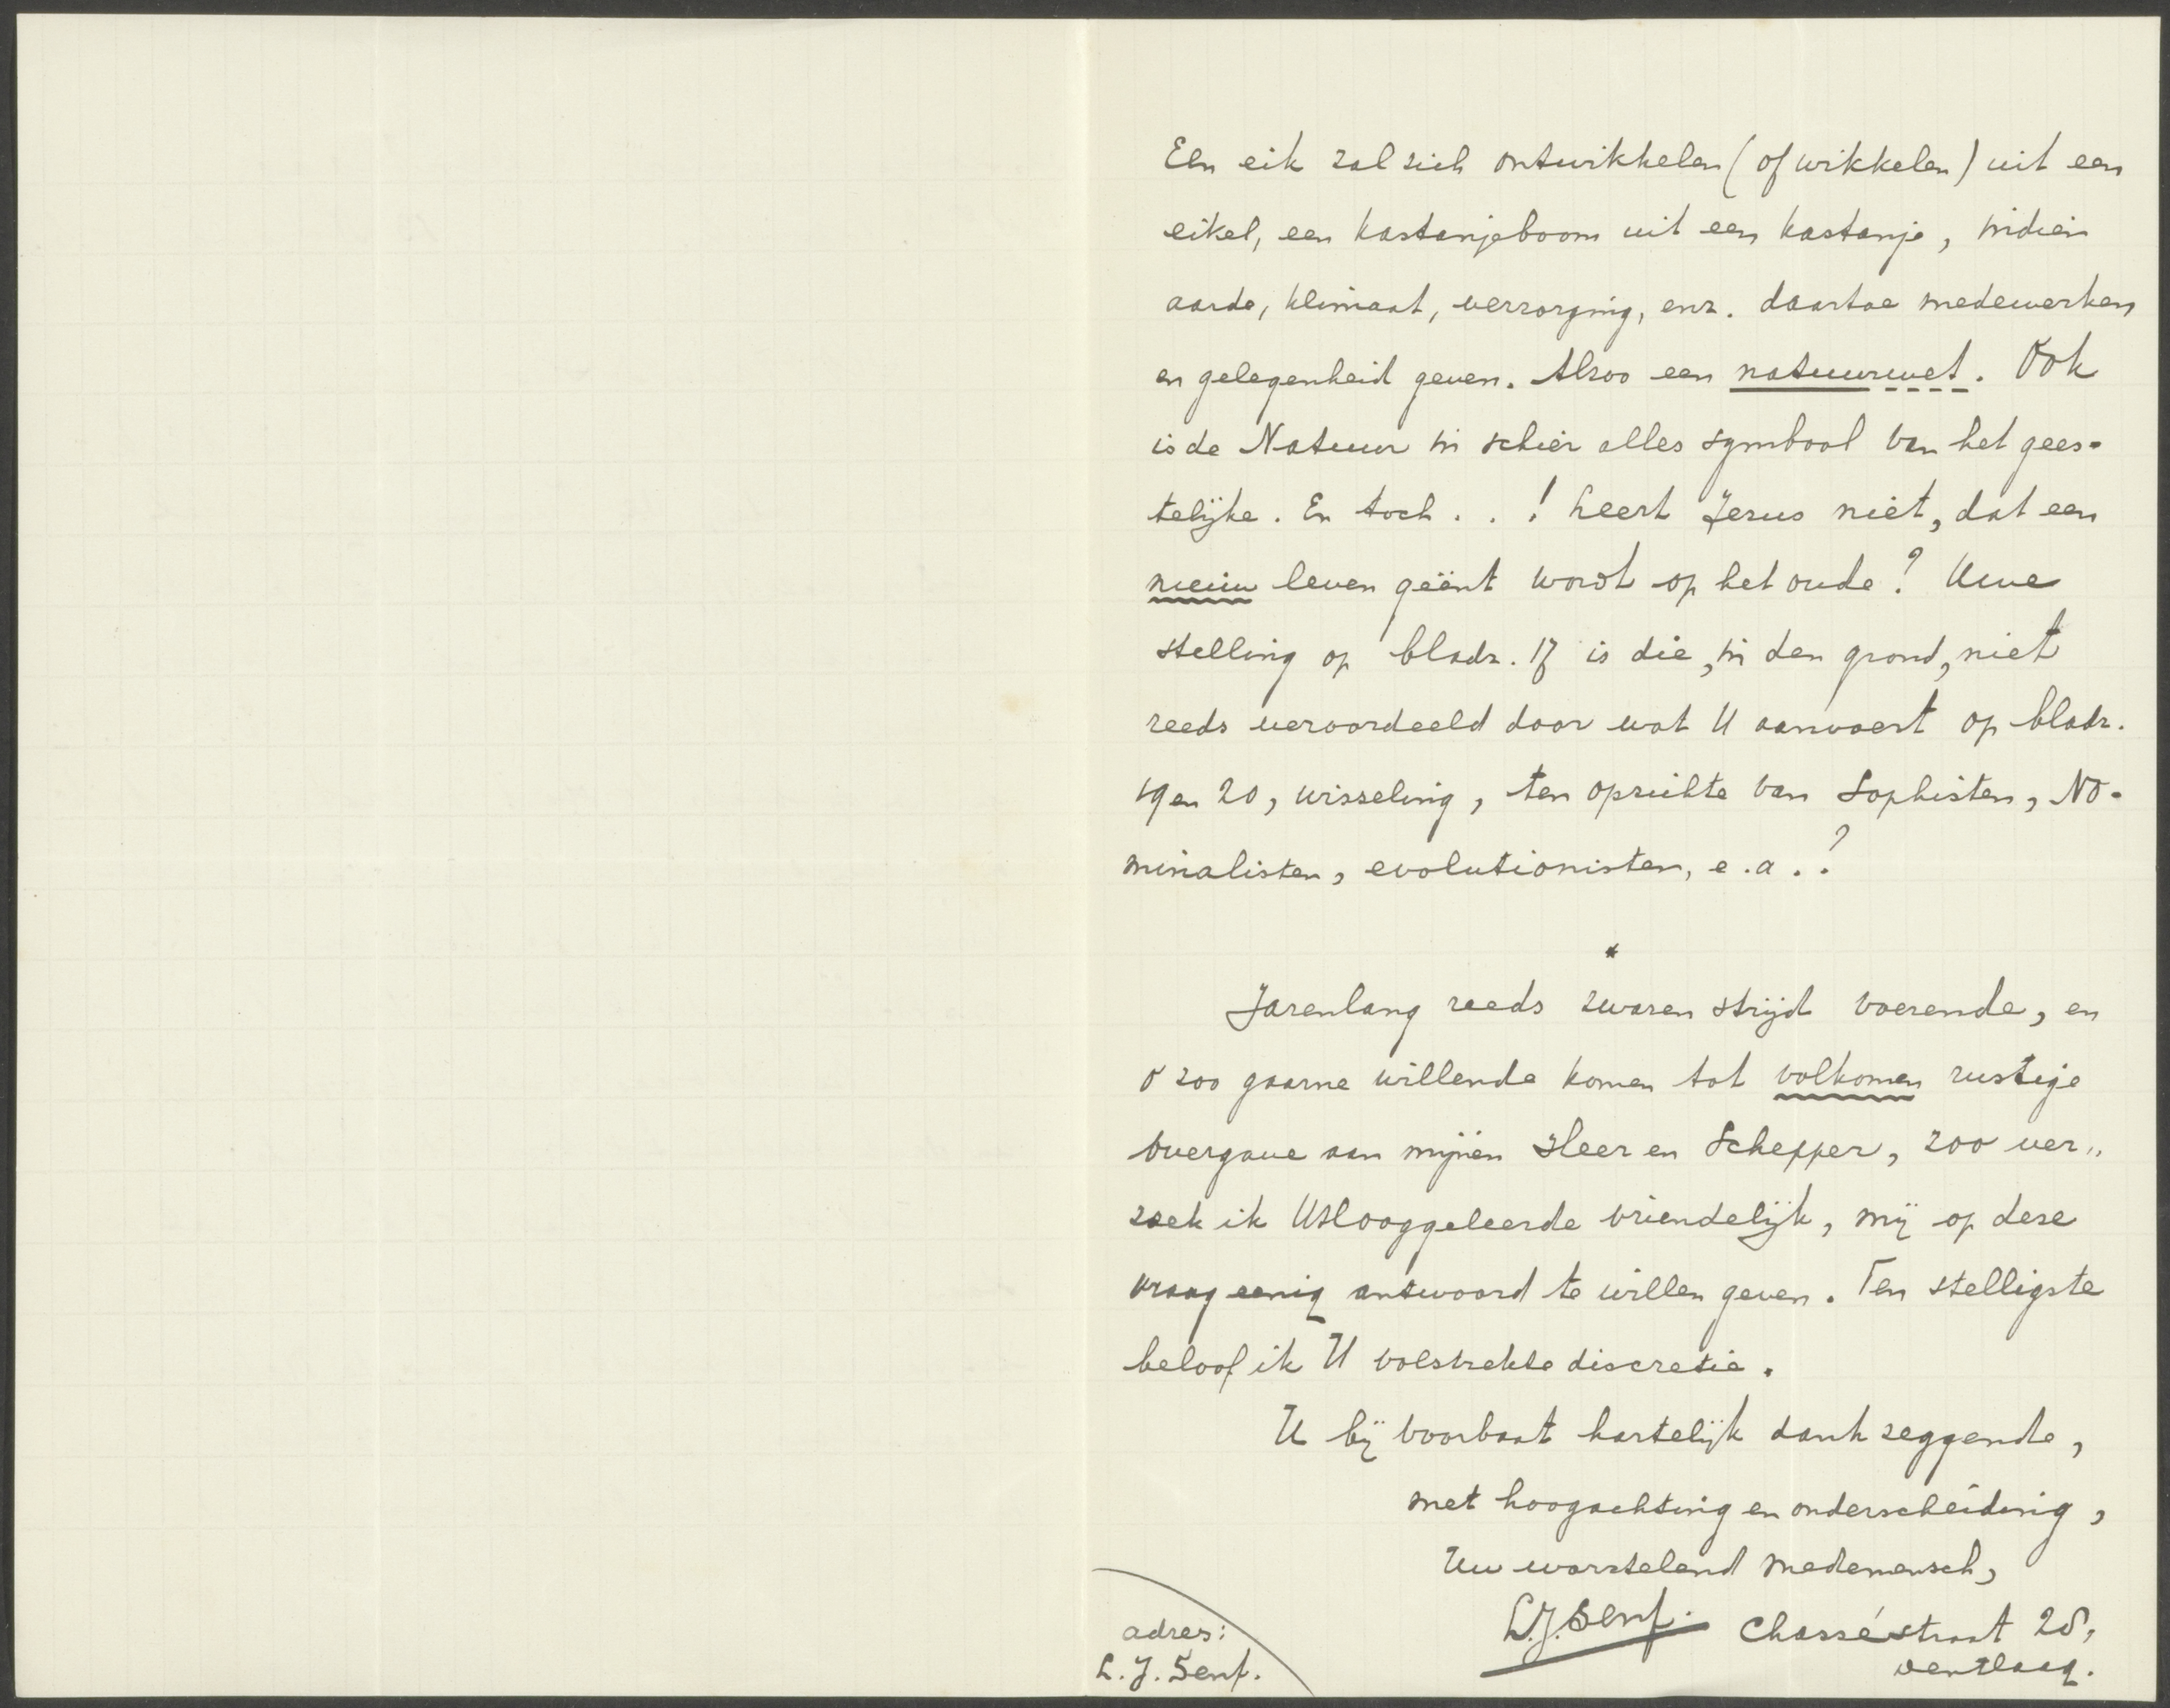 Een eik zal zich ontwikkelen (of wikkelen) uit een
eikel, een kastanjeboom uit een kastanje, indien
aarde, klimaat, verzorging, enz. daartoe medewerken
en gelegenheid geven. Alzoo een natuurwet. Ook
is de Natuur in schier alles symbool van het gees-
telijke. En toch . . ! Leert Jezus niet, dat een
nieuw leven geënt wordt op het oude? Uwe
stelling op bladz. 17 is die, in den grond, niet
reeds veroordeeld door wat U aanvoert op bladz.
19 en 20, wisseling, ten opzichte van Sophisten, No-
minalisten, evolutionisten, e.a..?
*
Jarenlang reeds zwaren strijd voerende, en
o zoo gaarne willende komen tot volkomen rustige
overgave aan mijnen Heer en Schepper, zoo ver„
zoek ik UHooggeleerde vriendelijk, mij op deze
vraag eenig antwoord te willen geven. Ten stelligste
beloof ik U volstrekte discretie.
U bij voorbaat hartelijk dank zeggende,
met hoogachting en onderscheiding,
Uw worstelend medemensch,
L.J. Senf. Chassé straat 28,
den Haag.
adres:
L. J. Senf.